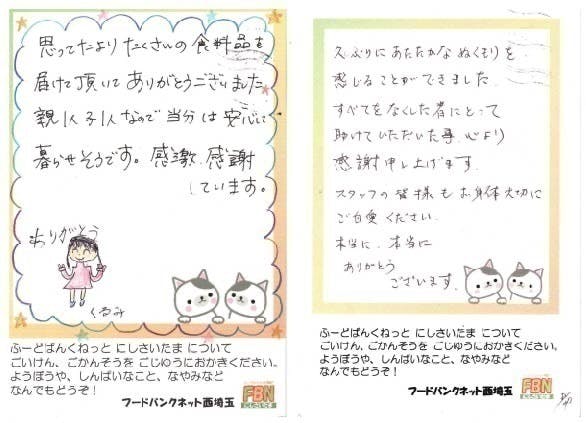 思ってたより たくさんの 食料品を
届けて頂いて ありがとうございました
親1人子1人なので 当分は 安心に
暮らせそうです。感激、感謝
しています。
ありがとう
くるみ
ふーどばんくねっと にしさいたま について
ごいけん、ごかんそうを ごじゆうにおかきください。
ようぼうや、しんぱいなこと、なやみなど
なんでもどうぞ！
フードバンクネット西埼玉
FBN
にしさいたま
久ぶりにあたたかな ぬくもりを
感じることができました
すべてをなくした者にとって
助けていただいた事、心より
感謝申し上げます。
スタッフの皆様も お身体大切に
ご自愛ください。
本当に、本当に
ありがとう
ございます。
ふーどばんくねっと にしさいたま について
ごいけん、ごかんそうを ごじゆうにおかきください。
ようぼうや、しんぱいなこと、なやみなど
なんでもどうぞ！
フードバンクネット西埼玉
FBN
にしさいたま